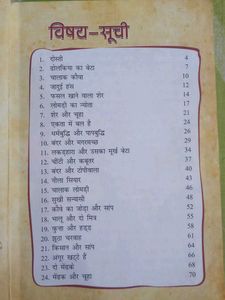 विषय-सूची
1. दोस्ती 4
2. ढोलकिया का बेटा 7
3. चालाक कौवा 10
4. जादुई हंस 12
5. फसल खाने वाला शेर 14
6. लोमड़ी का न्योता 17
7. शेर और चूहा 21
8. एकता में बल है 24
9. धर्मबुद्धि और पापबुद्धि 26
10. बंदर और मगरमच्छ 30
11. लकड़हारा और उसका मूर्ख बेटा 34
12. चींटी और कबूतर 37
13. बंदर और टोपीवाला 40
14. नीला सियार 43
15. चालाक लोमड़ी 47
16. सुखी सन्यासी 49
17. कौवे का जोड़ा और सांप 52
18. भालू और दो मित्र 55
19. कुत्ता और हड्डी 58
20. झूठा चरवाहा 60
21. किसान और सांप 62
22. अंगूर खट्टे हैं 66
23. दो मेंढक 68
24. मेंढक और चूहा 70